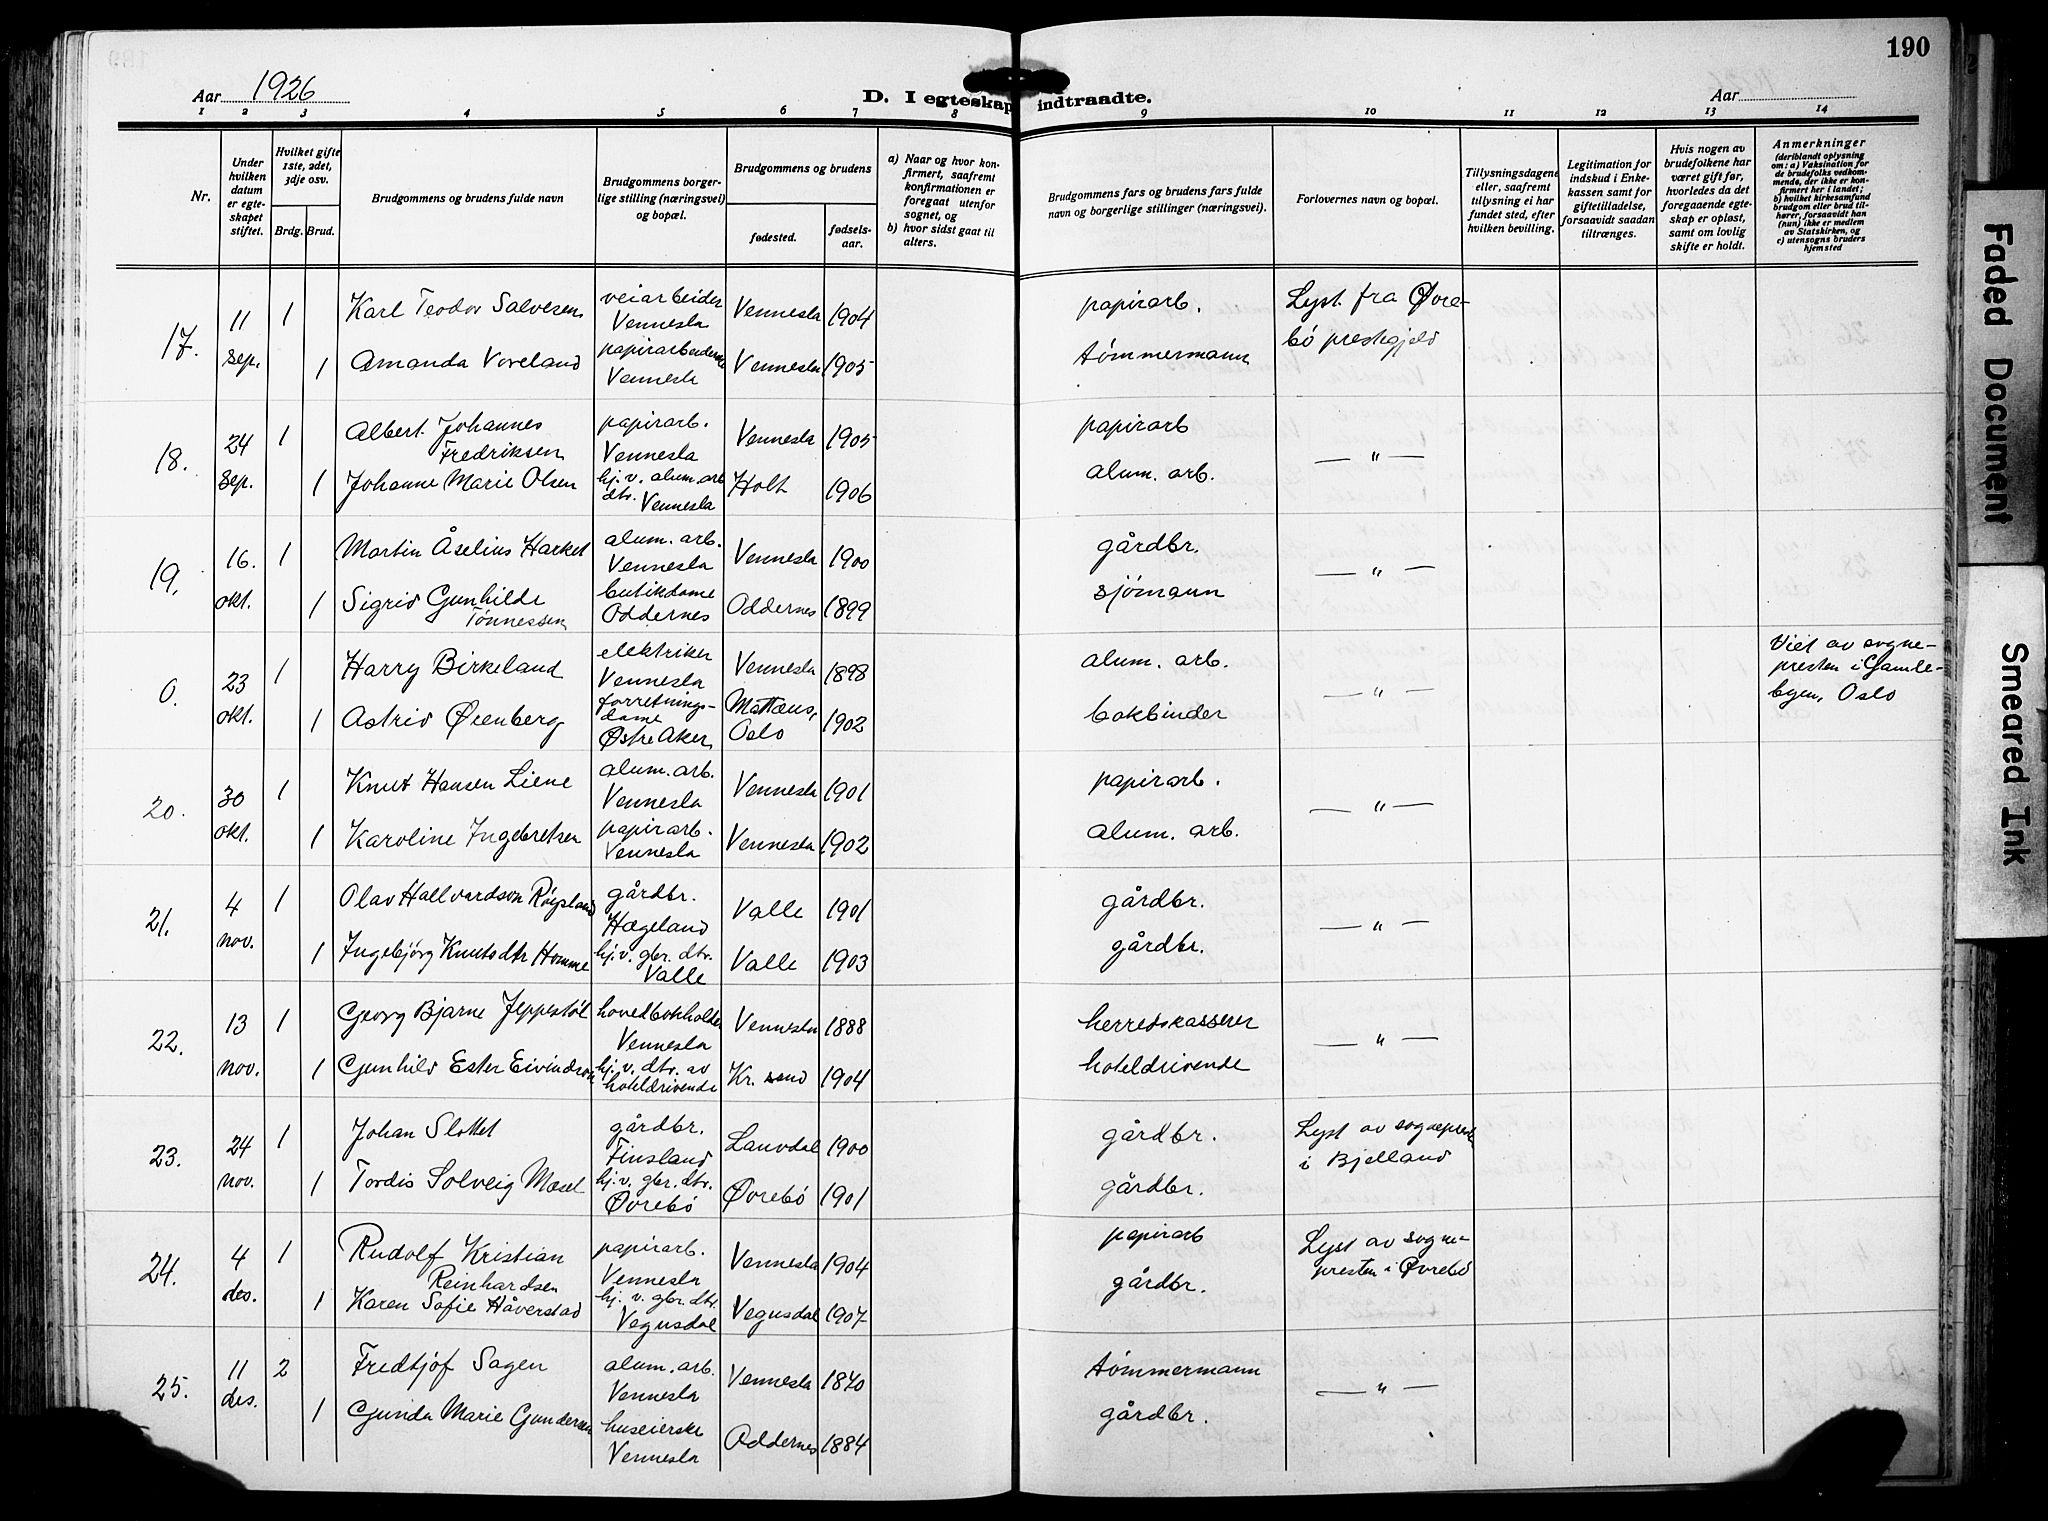 190
Aar 1926
D. I egteskap indtraadte.
Aar
1 2 3 4 5 6 7 8 9 10 11 12 13 14
Nr.
Under hvilken datum er egteskapet stiftet.
Hvilket gifte 1ste, 2det, 3dje osv.
Brdg. Brud.
Brudgommens og brudens fulde navn
Brudgommens borgerlige stilling (næringsvei) og bopæl.
Brudgommens og brudens
fødested.
fødselsaar.
a) Naar og hvor konfirmert, saafremt konfirmationen er foregaat utenfor sognet, og
b) hvor sidst gaat til alters.
Brudgommens fars og brudens fars fulde navn og borgerlige stillinger (næringsvei).
Forlovernes navn og bopæl.
Tillysningsdagene eller, saafremt tillysning ei har fundet sted, efter hvilken bevilling.
Legitimation for indskud i Enkekassen samt for giftetilladelse, forsaavidt saadan tiltrænges.
Hvis nogen av brudefolkene har været gift før, hvorledes da det foregaaende egteskap er opløst, samt om lovlig skifte er holdt.
Anmerkninger
(deriblandt oplysning om: a) Vaksination for de brudefolks vedkommende, der ikke er konfirmert her i landet; b) hvilket kirkesamfund brudgom eller brud tilhører, forsaavidt han (hun) ikke er medlem av Statskirken, og c) utensogns bruders hjemsted
17. 11 sep. 1 Karl Teodor Salvesen veiarbeider Vennesla Vennesla 1904 papirarb. Lyst fra Øvrebö prestegjeld
1 Amanda Voreland papirarbeiderske Vennesla Vennesla 1905 tømmermann
18. 24 sep. 1 Albert Johannes Fredriksen papirarb. Vennesla Vennesla 1905 papirarb — " —
1 Johanne Marie Olsen hj. v. alum. arb dtr. Vennesla Holt 1906 alum. arb.
19. 16. okt. 1 Martin Åselius Harket alum. arb. Vennesla Vennesla 1900 gårdbr. — " —
1 Sigrid Gunhilde Tönnessen butikdame Oddernes Oddernes 1899 sjømann
0. 23 okt. 1 Harry Birkeland elektriker Vennesla Vennesla 1898 alum. arb. — " — Viet av sognepresten i Gamlebyen, Oslo
1 Astrid Øienberg forretningsdame Østre Aker Mattæus, Oslo 1902 bokbinder
20. 30 okt. 1 Knut Hansen Liene alum. arb. Vennesla Vennesla 1901 papirarb. — " —
1 Karoline Ingebretsen papirarb. Vennesla Vennesla 1902 alum. arb.
21. 4 nov. 1 Olav Hallvardson Røysland gårdbr. Hægeland Valle 1901 gårdbr. — " —
1 Ingebjörg Knutsdtr Homme hj. v. gbr. dtr. Valle Valle 1903 gårdbr.
22. 13 nov. 1 Georg Bjarne Jeppestöl hovedbokholder Vennesla Vennesla 1888 herredskasserer — " —
1 Gunhild Ester Eivindson hj. v. dtr. av hoteldrivende Kr. sand 1904 hoteldrivende
23. 24 nov. 1 Johan Slottet gårdbr. Finsland Lauvdal 1900 gårdbr. Lyst av sogneprest i Bjelland
1 Tordis Solveig Mæsel hj. v. gbr. dtr. Øvrebö Øvrebö 1901 gårdbr.
24. 4 des. 1 Rudolf Kristian Reinhardsen papirarb. Vennesla Vennesla 1904 papirarb Lyst av sognepresten i Øvrebö
1 Karen Sofie Håverstad hj. v. gbr. dtr. Vegusdal Vegusdal 1907 gårdbr.
25. 11 des. 2 Fredtjof Sagen alum. arb. Vennesla Vennesla 1870 tömmermann — " —
1 Gunda Marie Gundersen huseierske Vennesla Oddernes 1884 gårdbr.
Faded Document
Smeared Ink